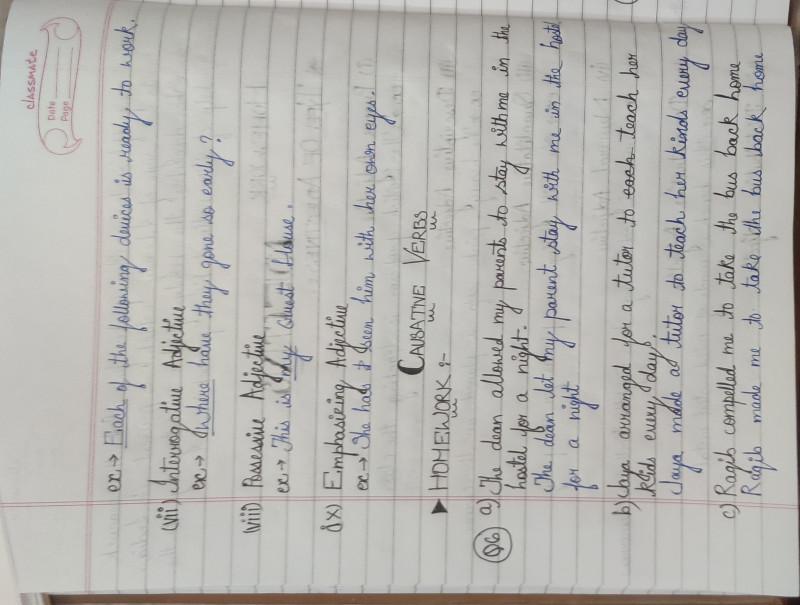 classmate
Date
Page
ex → Each of the following devices is ready to work.
(vii) Interrogative Adjective
ex → Where have they gone so early?
(viii) Possessive Adjective
ex → This is my Guest House.
ix) Emphasizing Adjective
ex → She has seen him with her own eyes.
CAUSATIVE VERBS
► HOMEWORK :-
Q6 a) The dean allowed my parents to stay with me in the
hostel for a night.
The dean let my parent stay with me in the hostel
for a night
b) Jaya arranged for a tutor to teach her
kids every day.
Jaya made a tutor to teach her kinds every day
c) Ragib compelled me to take the bus back home
Ragib made me to take the bus back home